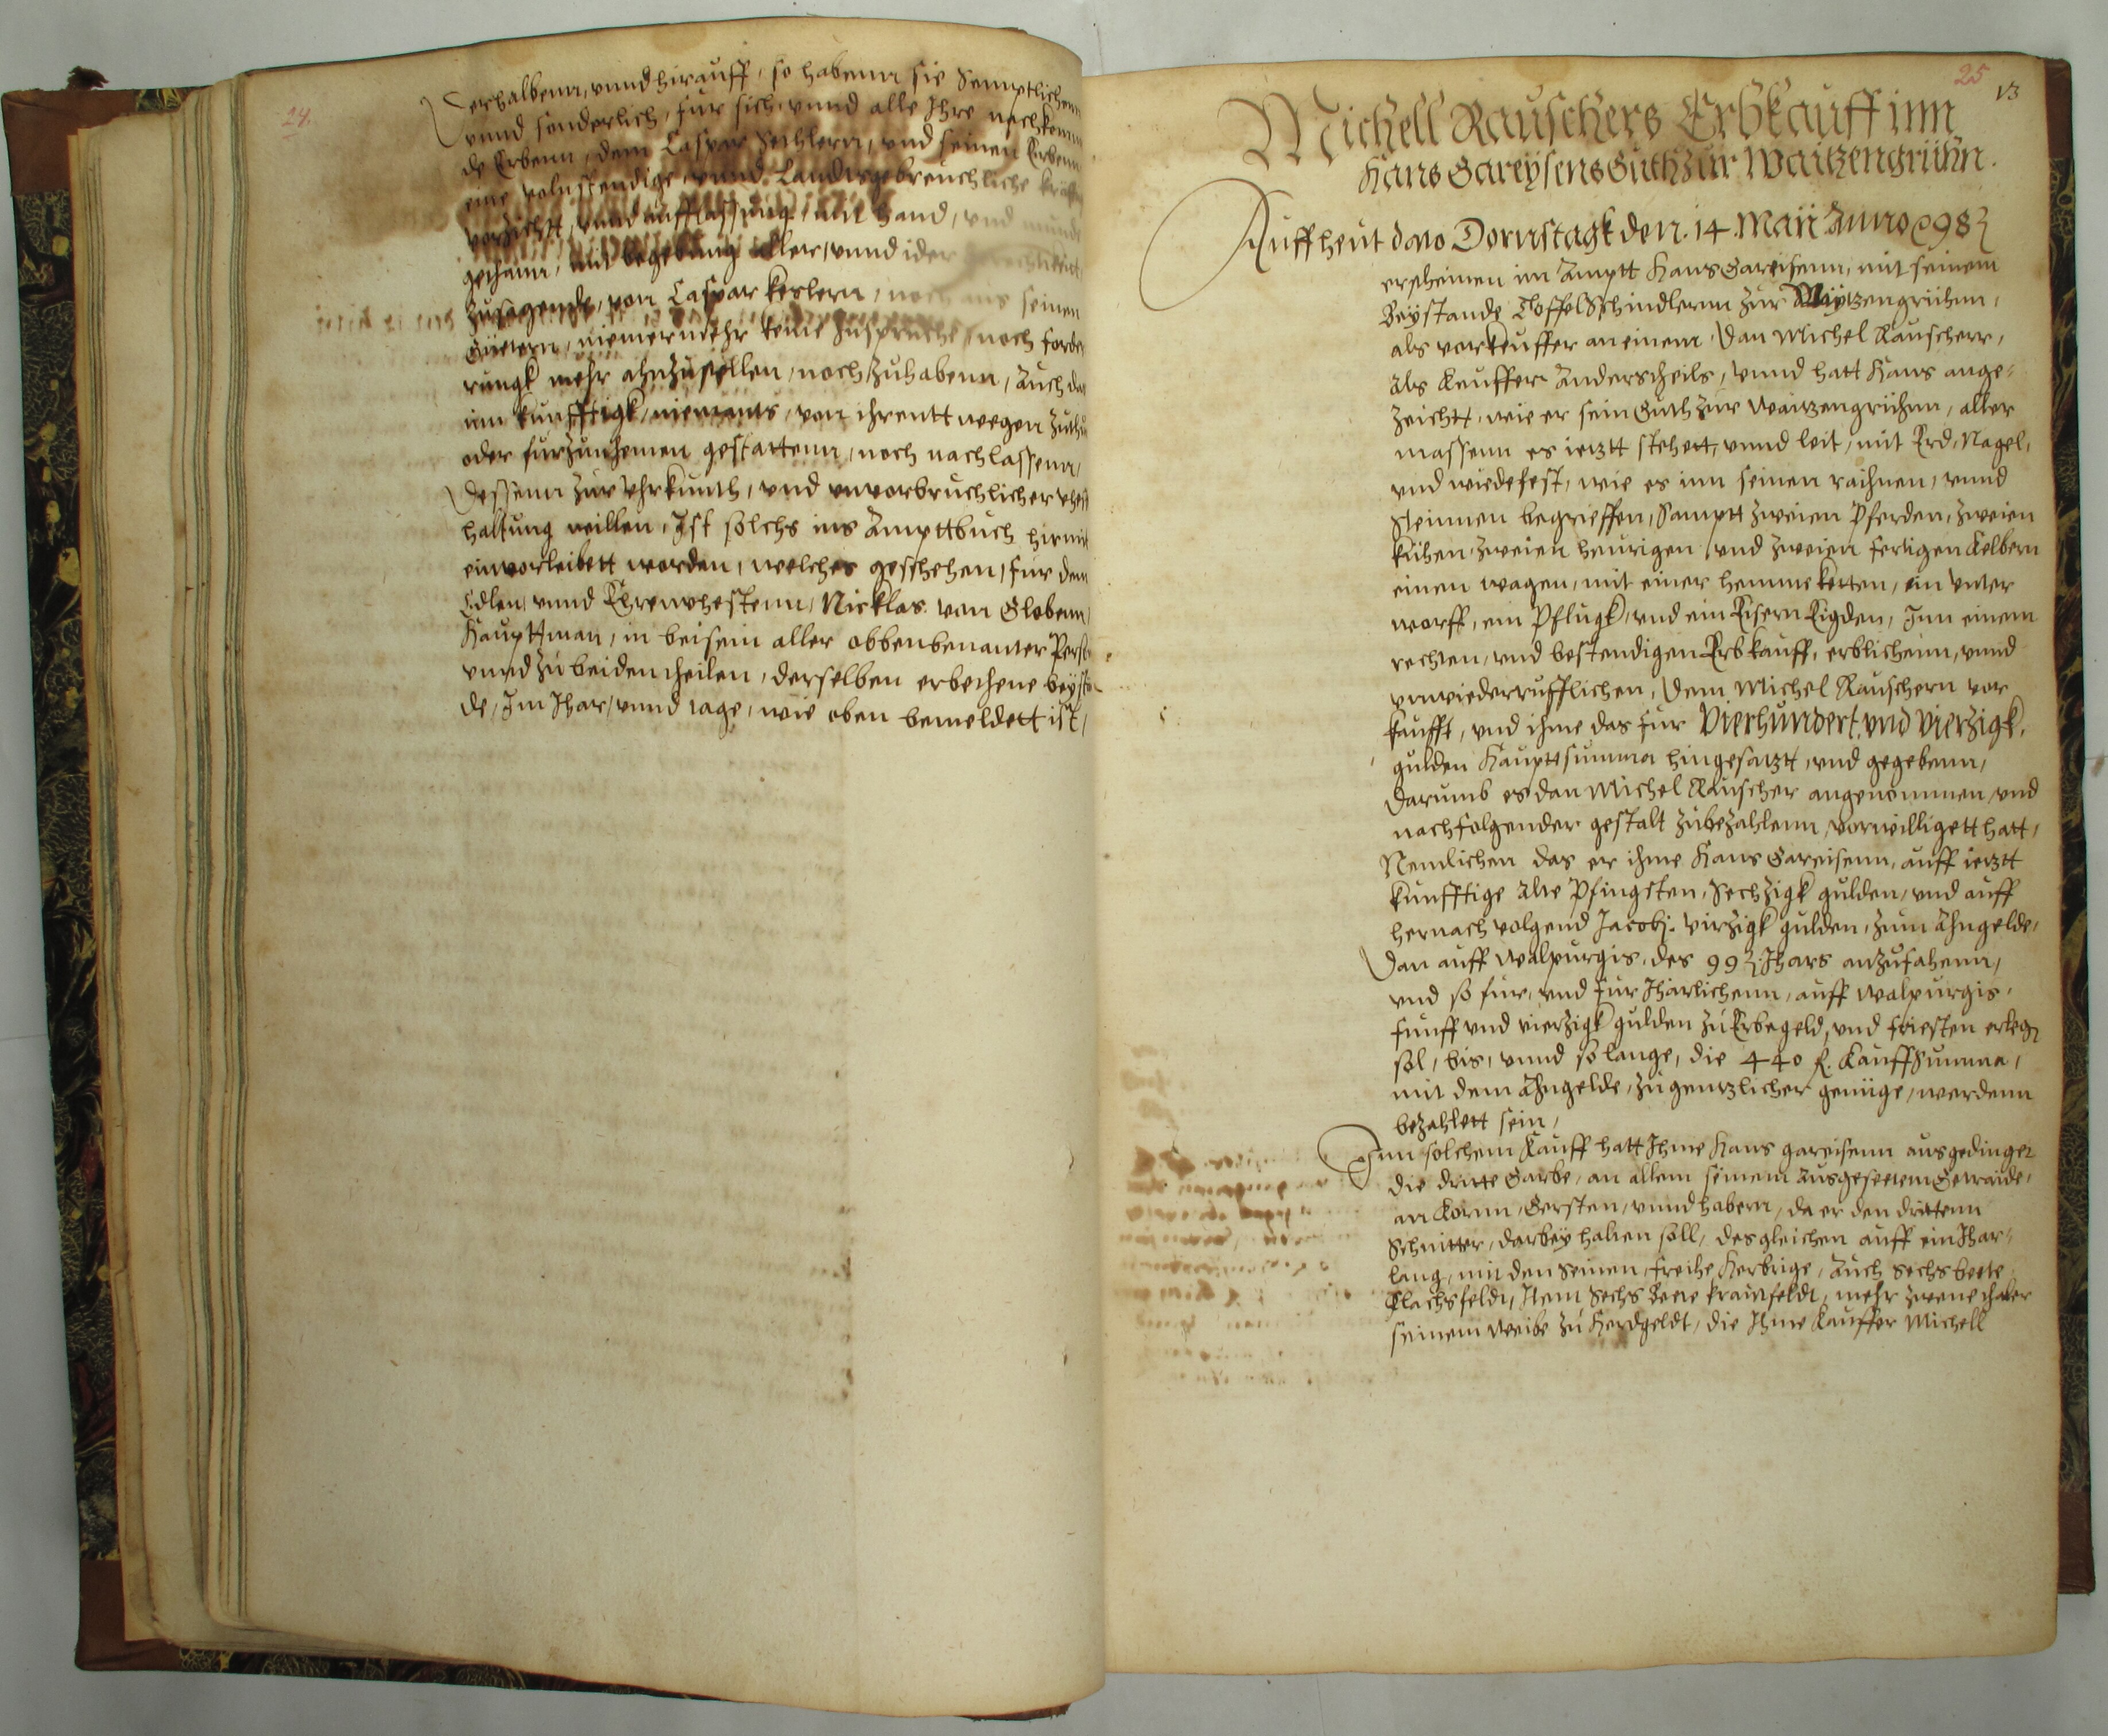 24.
Derhalbenn, vnnd hirauff, so habenn sie Semptlichenn
vnnd sonderlich, für sich, vnnd alle Ihre nachkommen
de Erbenn, dem Caspar, vnd seinen Erbenn
eine volnstendige, vnnd Landtsgebreuchliche
vorzicht, vnnd aufflassung, mit hand, vnd munde
gethann, mit begebung aller, vnnd ider gerechtikeit,
Zusagende, von Caspar keslern, noch aus seinen
Güetern, niemermehr keine Zusprüche, noch forde
rungk mehr ahnzustellen, noch zuhabenn, Auch das
inn kunfftigk, niemants, von ihrentt wegen zuthun
oder furzunhemen gestattenn, noch nachlassenn,
Dessenn zur vhrkunth, vnd vnvorbruchlicher vhest
haltung willen, Ist solchs ins Ampttbuch hirmit
einvorleibett worden, welches geschehen, für dem
Edlen, vnnd Ehrenvhestenn, Nicklas von Globenn,
Hauptman, in beisein aller obbenbenanter Perso
vnnd zu beiden theilen, derselben erbethene beystä
de, Im Ihar, vnnd tage, wie oben bemeldett ist,
25
13
Michell Rauschers Erbkauff inn
Hans Gareysens Guth zur Waitzengrühn.
Auff heut dato Dornstagk den. 14. Maii Anno 98
erscheinen im Amptt Hans Gareisenn, mit seinem
Beystande Toffel Schindlernn zur Waytzengrühnn,
als vorkeuffer an einem, Dan Michel Rauscherr,
als Keuffer Anderstheils, vnnd hatt Hans ange-
zeichtt, wie er sein Guth zur Waitzengrühnn, aller
massenn es ietztt stehett, vnnd leit, mit Erd, Nagel,
vnd wiedefest, wie es inn seinen rainen, vnnd
Steinnen begrieffen, Samptt zweien Pferden, zweien
kühen, zweien heurigen, vnd zweien fertigen Kelbern
einen wagen, mit einer hemmeketten, ein vnter
worff, ein Pflugk, vnd ein Eisern Eigden, Inn einem
rechten, vnd bestendigen Erbkauff, erblichenn, vnnd
vnwiederrufflichen, dem Michel Rauschern vor
kaufft, vnd ihme das für Vierhundert, vnd Vierzigk,
gulden Hauptsumma hingesatztt, vnd gegebenn,
darumb es dan Michel Rauscher angenommen, vnd
nachfolgender gestalt zubezahlenn, vorwilligett hatt,
Nemlichen das er ihme Hans Gareisenn, auff ietztt
kunfftige Alte Pfingsten, Sechzigk gulden, vnd auff
hernach volgend Jacobj. virzigk gulden, zum Ahngelde,
Dan auff Walpurgis, des 99. Ihars anzufahenn,
vnd so für, vnd für Iharlichenn, auff Walpurgis,
funff vnd vierzigk gulden zu Erbegeld, vnd friesten erlegen
sol, bis, vnnd so lange, die 440 fl. Kauffsumma,
mit dem Ahngelde, zu gentzlicher genüge, werdenn
bezahlett sein,
Inn solchem Kauff hatt Ihme Hans gareisenn ausgedinget
die dritte Garbe, an allem seinem Ausgeseetem Getraide,
an Kornn, Gersten, vnnd habern, da er den drittenn
Schnitter, darbey halten soll, desgleichen auff ein Ihar-
lang, mit den Seinen, freihe Herbrige, Auch sechs beete
Flachsfeldt, Item Sechs Beete krautfeldt, mehr zwene thaler
seinem Weibe zu Herdgeldt, die Ihme Kauffer Michell